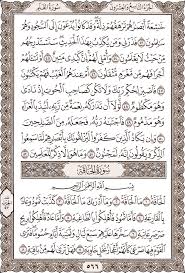 خَٰشِعَةً أَبْصَٰرُهُمْ تَرْهَقُهُمْ ذِلَّةٌ وَقَدْ كَانُوا۟ يُدْعَوْنَ إِلَى ٱلسُّجُودِ وَهُمْ
سَٰلِمُونَ ٤٣ فَذَرْنِى وَمَن يُكَذِّبُ بِهَٰذَا ٱلْحَدِيثِ سَنَسْتَدْرِجُهُم
مِّنْ حَيْثُ لَا يَعْلَمُونَ ٤٤ وَأُمْلِى لَهُمْ إِنَّ كَيْدِى مَتِينٌ ٤٥ أَمْ تَسْـَٔلُهُمْ
أَجْرًا فَهُم مِّن مَّغْرَمٍ مُّثْقَلُونَ ٤٦ أَمْ عِندَهُمُ ٱلْغَيْبُ فَهُمْ يَكْتُبُونَ ٤٧
فَٱصْبِرْ لِحُكْمِ رَبِّكَ وَلَا تَكُن كَصَاحِبِ ٱلْحُوتِ إِذْ نَادَىٰ وَهُوَ مَكْظُومٌ ٤٨
لَّوْلَآ أَن تَدَٰرَكَهُۥ نِعْمَةٌ مِّن رَّبِّهِۦ لَنُبِذَ بِٱلْعَرَآءِ وَهُوَ مَذْمُومٌ ٤٩
فَٱجْتَبَٰهُ رَبُّهُۥ فَجَعَلَهُۥ مِنَ ٱلصَّٰلِحِينَ ٥٠
وَإِن يَكَادُ ٱلَّذِينَ كَفَرُوا۟ لَيُزْلِقُونَكَ بِأَبْصَٰرِهِمْ لَمَّا سَمِعُوا۟
ٱلذِّكْرَ وَيَقُولُونَ إِنَّهُۥ لَمَجْنُونٌ ٥١ وَمَا هُوَ إِلَّا ذِكْرٌ لِّلْعَٰلَمِينَ ٥٢
سُورَةُ الحَاقَّةِ
بِسْمِ ٱللَّهِ ٱلرَّحْمَٰنِ ٱلرَّحِيمِ
ٱلْحَآقَّةُ ١ مَا ٱلْحَآقَّةُ ٢ وَمَآ أَدْرَىٰكَ مَا ٱلْحَآقَّةُ ٣ كَذَّبَتْ ثَمُودُ
وَعَادٌۢ بِٱلْقَارِعَةِ ٤ فَأَمَّا ثَمُودُ فَأُهْلِكُوا۟ بِٱلطَّاغِيَةِ ٥ وَأَمَّا عَادٌ
فَأُهْلِكُوا۟ بِرِيحٍ صَرْصَرٍ عَاتِيَةٍ ٦ سَخَّرَهَا عَلَيْهِمْ سَبْعَ لَيَالٍ
وَثَمَٰنِيَةَ أَيَّامٍ حُسُومًا فَتَرَى ٱلْقَوْمَ فِيهَا صَرْعَىٰ كَأَنَّهُمْ
أَعْجَازُ نَخْلٍ خَاوِيَةٍ ٧ فَهَلْ تَرَىٰ لَهُم مِّنۢ بَاقِيَةٍ ٨
٥٦٦